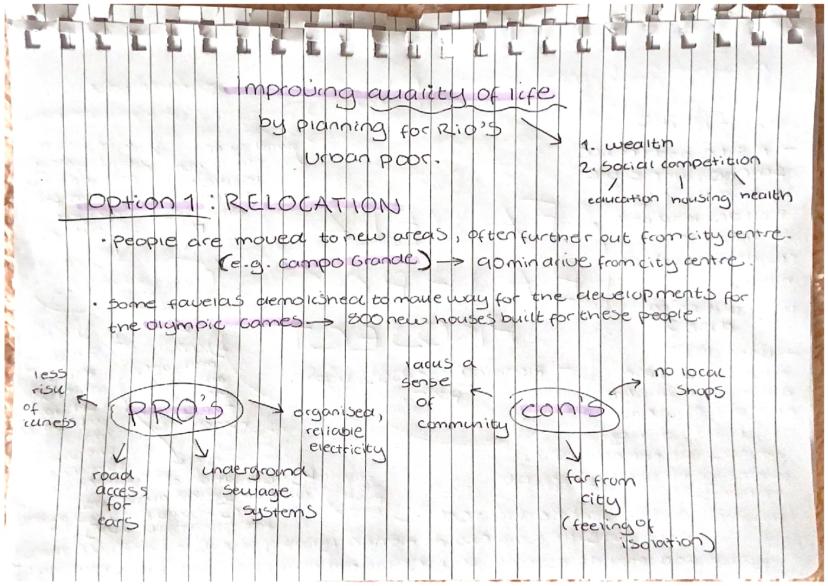 Improving quality of life
by planning for Rio's
urban poor.
1. wealth
2. social competition
education housing health
Option 1 : RELOCATION
• people are moved to new areas, often further out from city centre.
(e.g. Campo Grande) → 90 min drive from city centre.
• some favelas demolished to make way for the developments for
the Olympic Games → 800 new houses built for these people.
PRO's
less
risk
of
illness
road
access
for
cars
underground
sewage
systems
organised,
reliable
electricity
con's
lacks a
sense
of
community
far from
city
(feeling of
isolation)
no local
shops